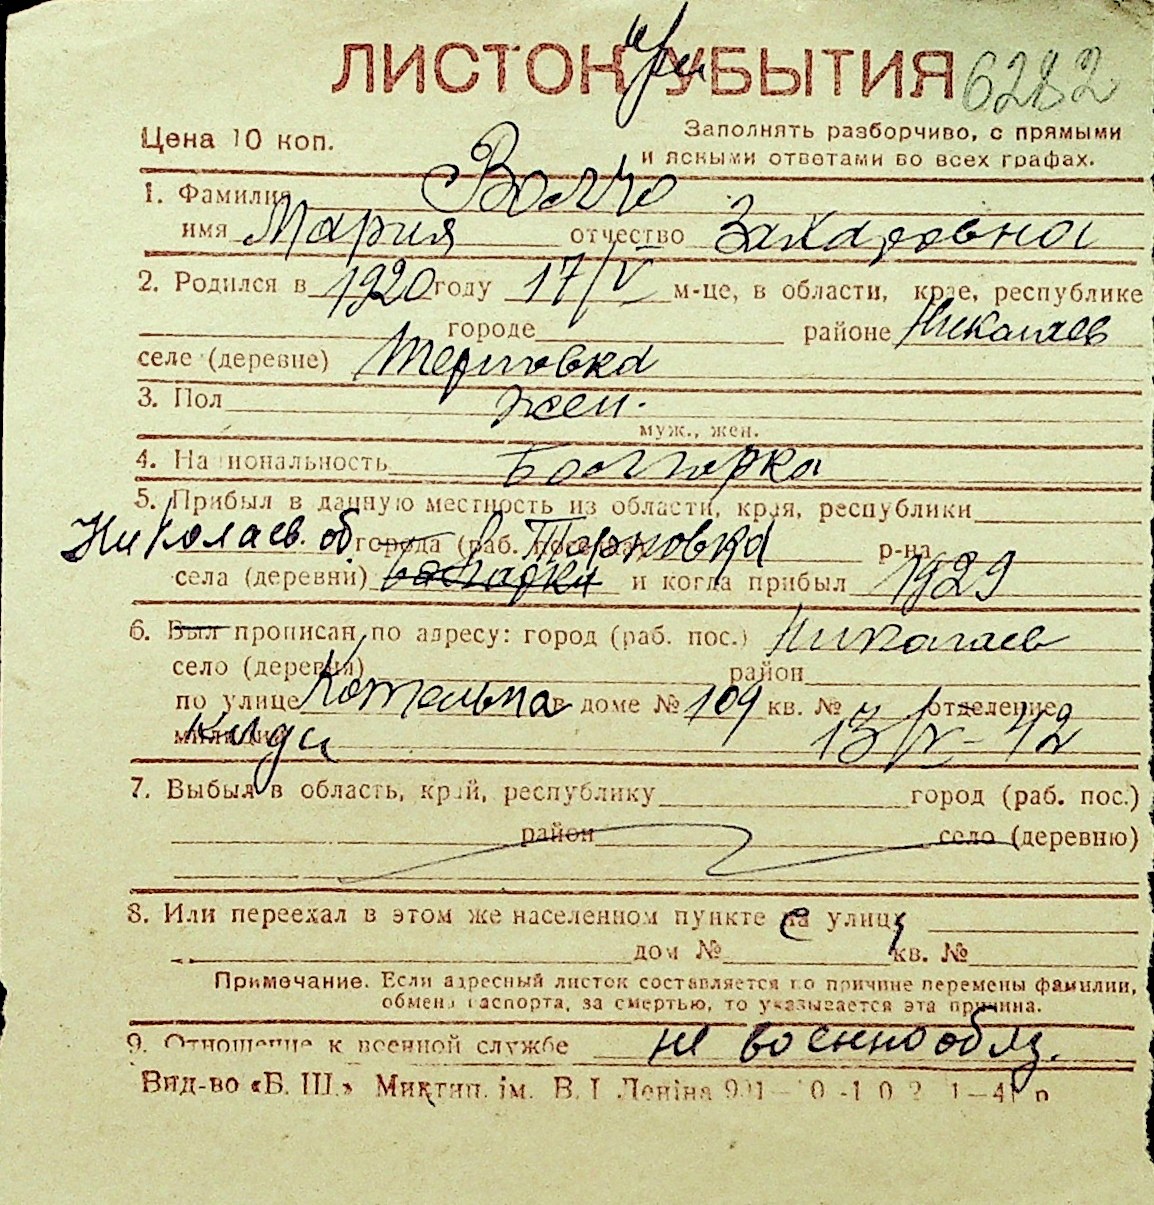 ЛИСТОК при УБЫТИЯ 6282
Цена 10 коп.
Заполнять разборчиво, с прямыми
и ясными ответами во всех графах.
1. Фамилия Волчо
имя Мария отчество Захаровна
2. Родился в 1920 году 17/V м-це, в области, крае, республике
городе районе Николаев
селе (деревне) Терновка
3. Пол жен.
муж., жен.
4. Национальность Болгарка
5. Прибыл в данную местность из области, края, республики
Николаев. об города (раб. поселка) Терновка р-на
села (деревни) болгарка и когда прибыл 1929
6. Был прописан по адресу: город (раб. пос.) Николаев
село (деревня) район
по улице Котельна в доме № 109 кв. № отделение
милиции 13/V-42
7. Выбыл в область, край, республику город (раб. пос.)
район село (деревню)
8. Или переехал в этом же населенном пункте на улицу
дом № кв. №
Примечание. Если адресный листок составляется по причине перемены фамилии,
обмена паспорта, за смертью, то указывается эта причина.
9. Отношение к военной службе не военнообяз.
Вид-во «Б. Ш.» Миктип. ім. В. І Леніна